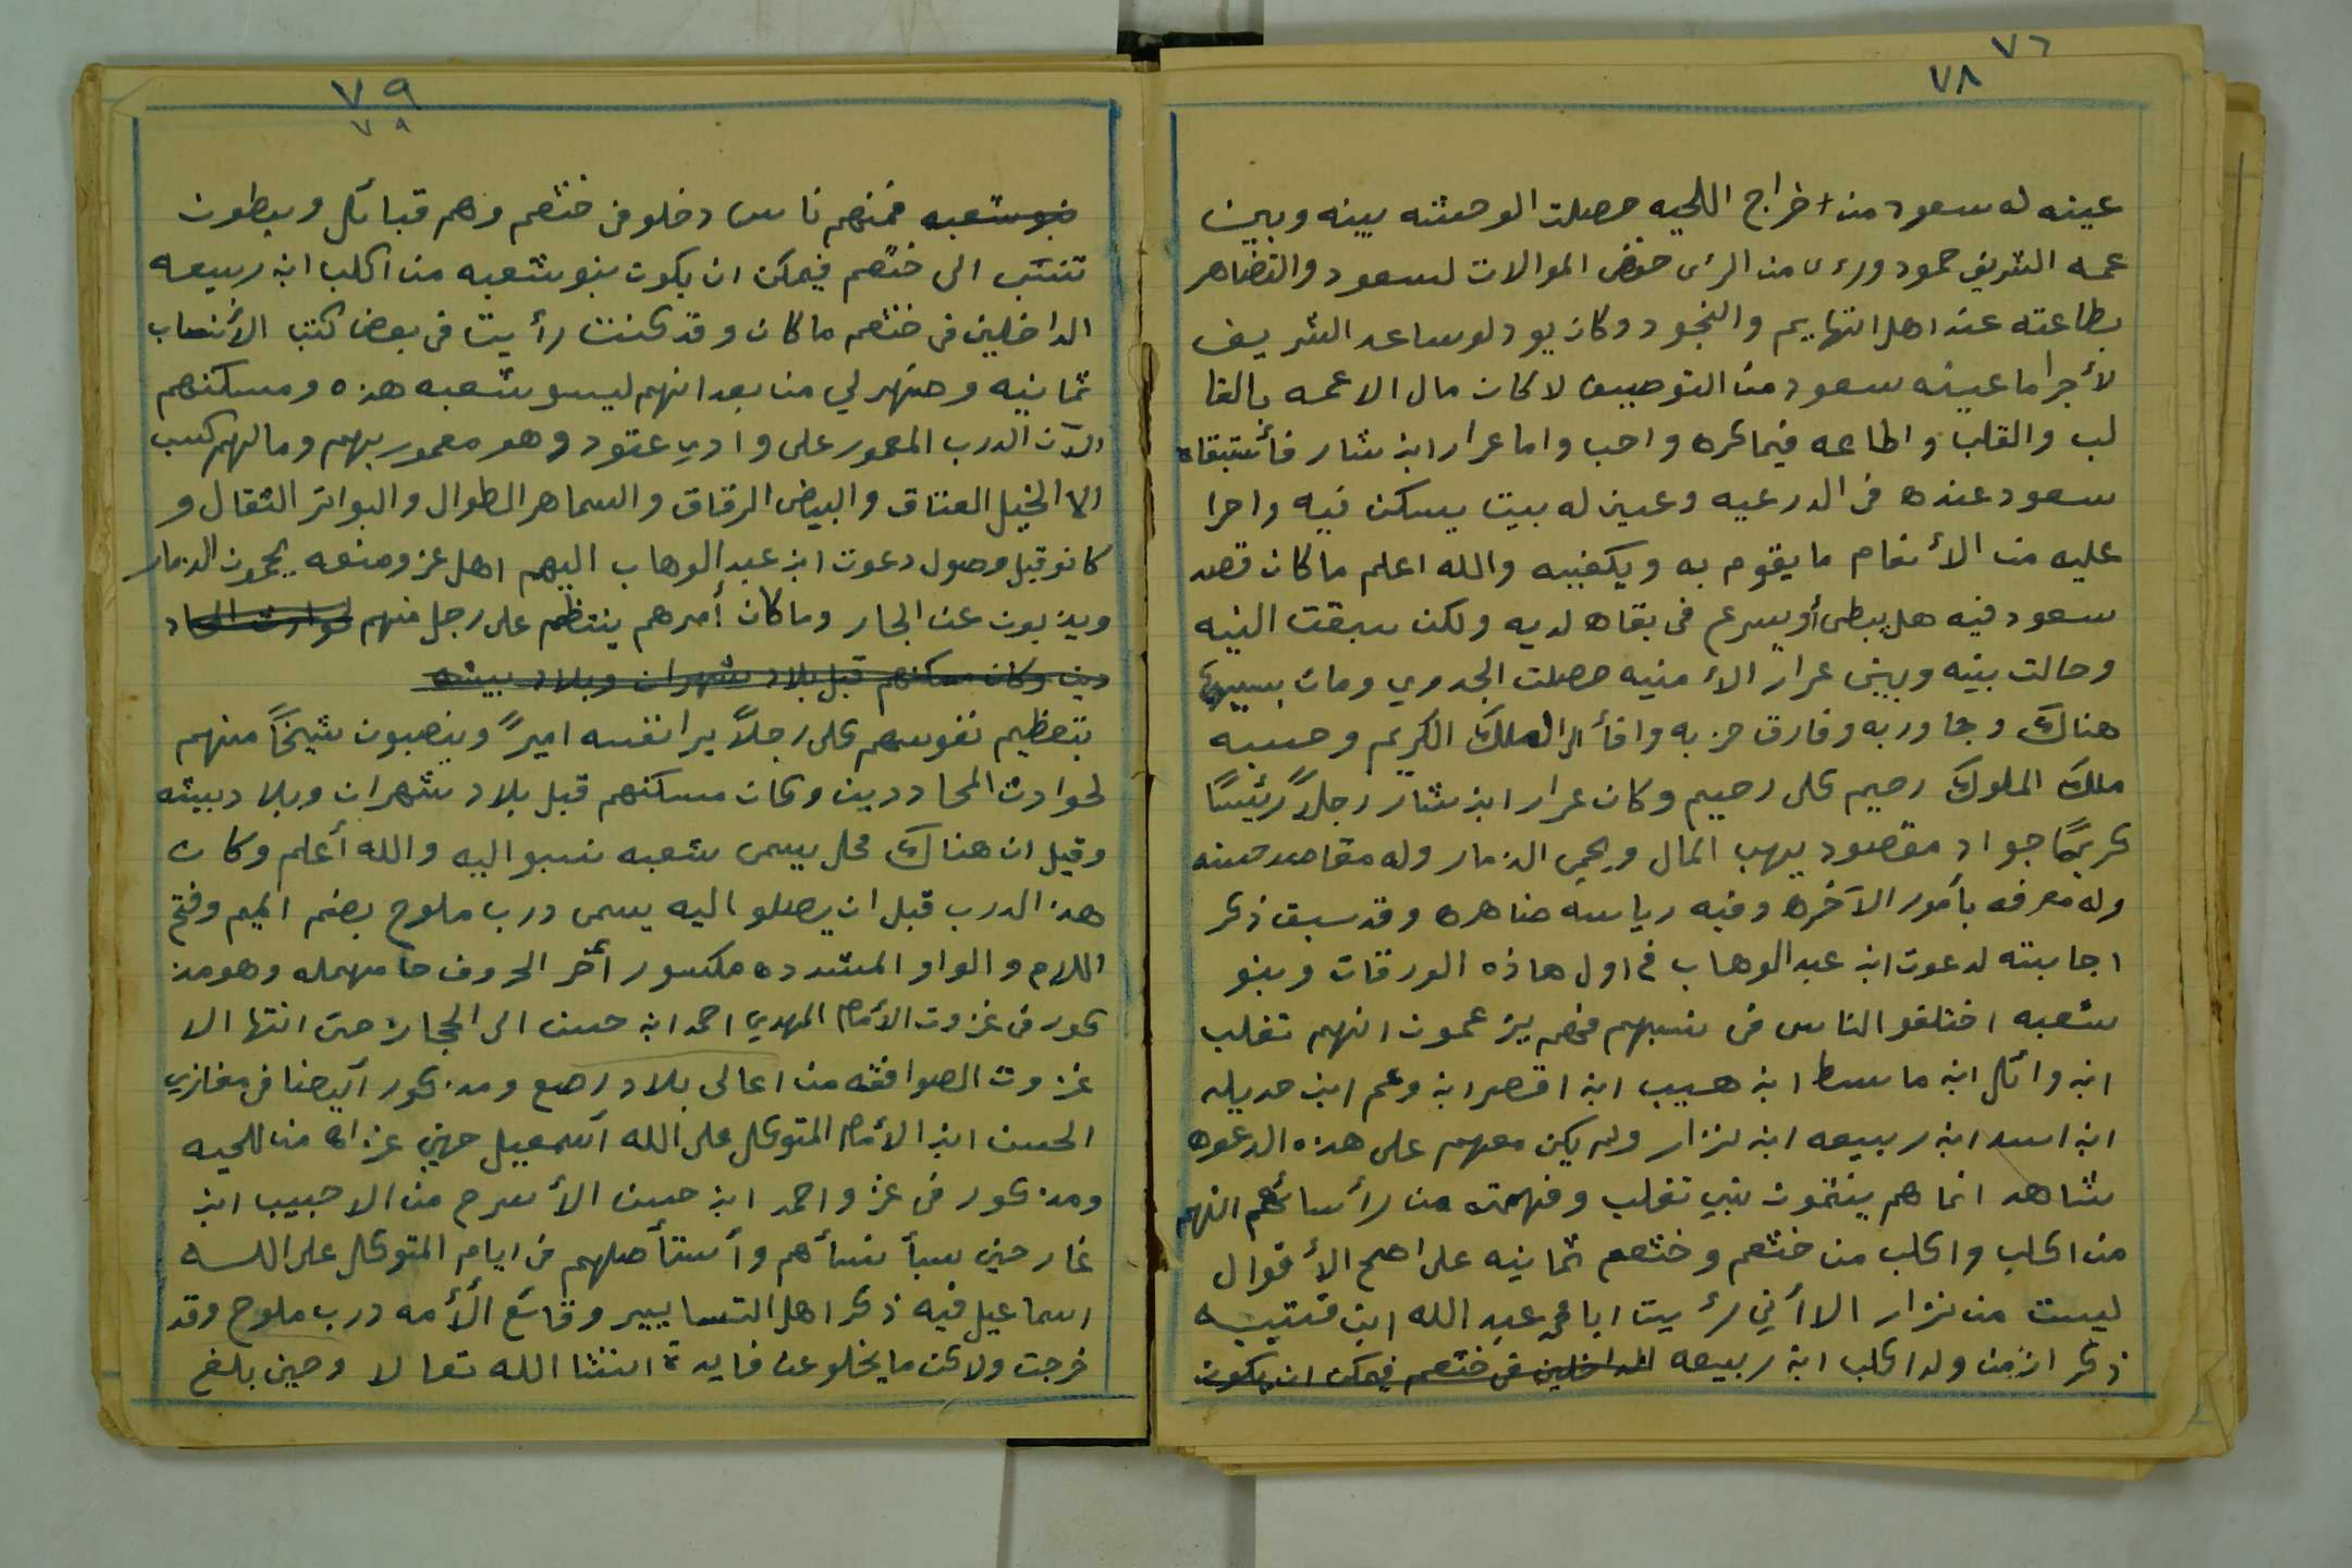 ٧٦
٧٨
عينه له سعود من اخراج اللحيه حصلت الوحشه بينه وبين
عمه الشريف حمود ورءى من الرءى خفض الموالات لسعود والتضاهر
بطاعته عند اهل التهايم والنجود وكان يود لو ساعد الشريف
لأجرا ما عينه سعود من التوصيف لا كان مال الا عمه بالقا
لب والقلب واطاعه فيما كره واحب واما عرار ابن شار فأستبقاه
سعود عنده في الدرعيه وعين له بيت يسكن فيه واجرا
عليه من الأنعام ما يقوم به ويكفيه والله اعلم ما كان قصد
سعود فيه هل يبطى أو يسرع في بقاه لديه ولكن سبقت النيه
وحالت بينه وبين عرار الأمنيه حصلت الجدوي ومات بسببها
هناك وجاور به وفارق حزبه وافأ الى الملك الكريم وحسبه
ملك الملوك رحيم على رحيم وكان عرار ابن شار رجلاً رئيسًا
كريمًا جواد مقصود يهب المال ويحمي الذمار وله مقاصد حسنه
وله معرفه بأمور الآخره وفيه رياسه ضاهره وقد سبق ذكر
اجابته لدعوت ابن عبد الوهاب في اول هاذه الورقات وبنو
شعبه اختلفو الناس في نسبهم فهم يزعمون انهم تغلب
ابن وائل ابن ماسط ابن هيب ابن اقصر ابن وعم ابن جديله
ابن اسد ابن ربيعه ابن نزار ولم يكن معهم على هذه الدعوه
شاهد انما هم ينتمون بنبي تغلب وفهمته من رأسائهم انهم
من اكلب واكلب من خثعم وخثعم ثمانيه على اصح الأقوال
ليست من نزار الا أني رءيت ابا محمد عبد الله ابن قتيبه
ذكر ان من ولد اكلب ابن ربيعه الداخلين في خثعم فيمكن ان يكون
٧٩
٧٩
بنو شعبه فمنهم ناس دخلو في خثعم وهم قبائل وبطون
تنتسب الى خثعم فيمكن ان يكون بنو شعبه من اكلب ابن ربيعه
الداخلين في خثعم ما كان وقد كنت رأيت في بعض كتب الأنساب
ثمانيه وضهر لي من بعد انهم ليسو شعبه هذه ومسكنهم
الآن الدرب المعمور على وادي عتود وهو معمور بهم ومالهم كسب
الا الخيل العتاق والبيض الرقاق والسماهر الطوال والبواتر الثقال و
كانو قبل وصول دعوت ابن عبد الوهاب اليهم اهل عز ومنعه يحمون الذمار
ويذبون عن الجار وما كان أمرهم ينتظم على رجل منهم لحوادث المحاد
دين وكان مسكنهم قبل بلاد شهران وبلاد بيشه
بتعظيم نفوسهم كل رجلاً يرا نفسه اميرً وينصبون شيخاً منهم
لحوادث المحاددين وكان مسكنهم قبل بلاد شهران وبلاد بيشه
وقيل ان هناك محل يسمى شعبه نسبو اليه والله أعلم وكان
هذ الدرب قبل ان يصلو اليه يسمى درب ملوح بضم الميم وفتح
اللام والواو المشدده مكسور أخر الحروف حا مهمله وهو مذ
كور في غزوت الأمام المهدي احمد ابن حسن الى الحجاز حتى انتها الا
غزوت الصوافقه من اعالى بلاد رصع ومذكور أيضا في مغازي
الحسن ابن الأمام المتوكل على الله أسمعيل حين غزاه من اللحيه
ومذكور في غزو احمد ابن حسن الأسرح من الا حبيب ابن
غار حين سبأ نسأهم وأستأصلهم في ايام المتوكل على الله
اسماعيل فيه ذكر اهل التسابيير وقائع الأمه درب ملوح وقد
خرجت ولاكن ما يخلو عن فايدة انشا الله تعالا وحين بلغ